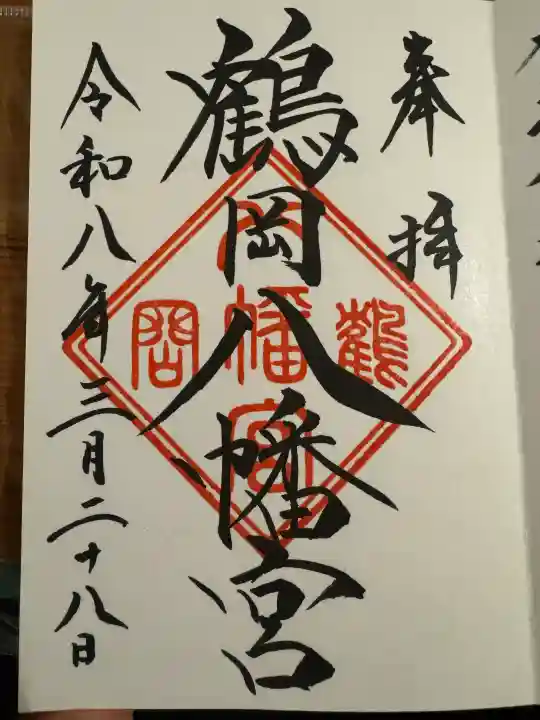 奉拝
鶴岡八幡宮
鶴
八幡宮
岡
令和八年三月二十八日